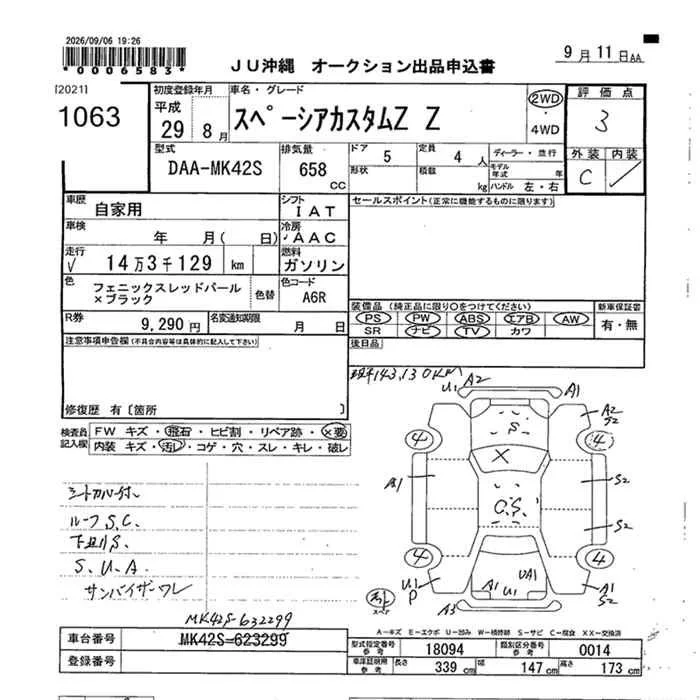 2026/09/06 19:26
*0006583*
JU沖縄 オークション出品申込書
9月11日AA
[2021]
1063
初度登録年月
平成
29 8月
車名・グレード
スペーシアカスタムZ Z
2WD
・
4WD
評価点
3
型式
DAA-MK42S
排気量
658
CC
ドア 5
定員 4 人
ディーラー・並行
形状
積載 kg
モデル年式 年
ハンドル 左・右
外装 内装
C ✓
車歴
自家用
シフト
IAT
セールスポイント(正常に機能するものに限ります)
車検
年 月( 日)
冷房
AAC
走行
√ 14万3千129 km
燃料
ガソリン
色
フェニックスレッドパール
×ブラック
色替
色コード
A6R
装備品(純正品に限り○をつけてください)
新車保証書
PS PW ABS エアB AW
有・無
SR ナビ TV カワ
R券
9,290円
名変通知期限
月 日
後日品
注意事項申告欄(不具合内容等は具体的に記入して下さい)
143,130KM
修復歴 有〔箇所 〕
検査員
記入欄
FW キズ・飛石・ヒビ割・リペア跡・×要
内装 キズ・汚レ・コゲ・穴・スレ・キレ・破レ
シートカバー付
ルーフS.C.
下廻りS.
S、U、A
サンバイザーワレ
U1 A2
A1
S
A2
S2
4
4
X
A1
S2
O.S.
S2
4
4
U1
P
A1 U1
UA1
A1
S2
A3
A-キズ E-エクボ U-凹み W-補修跡 S-サビ C-腐食 XX-交換済
MK42S-632299
車台番号
MK42S-623299
登録番号
型式指定番号
参考
18094
類別区分番号
参考
0014
車庫証明用
参考
長さ 339 cm 幅 147 cm 高さ 173 cm